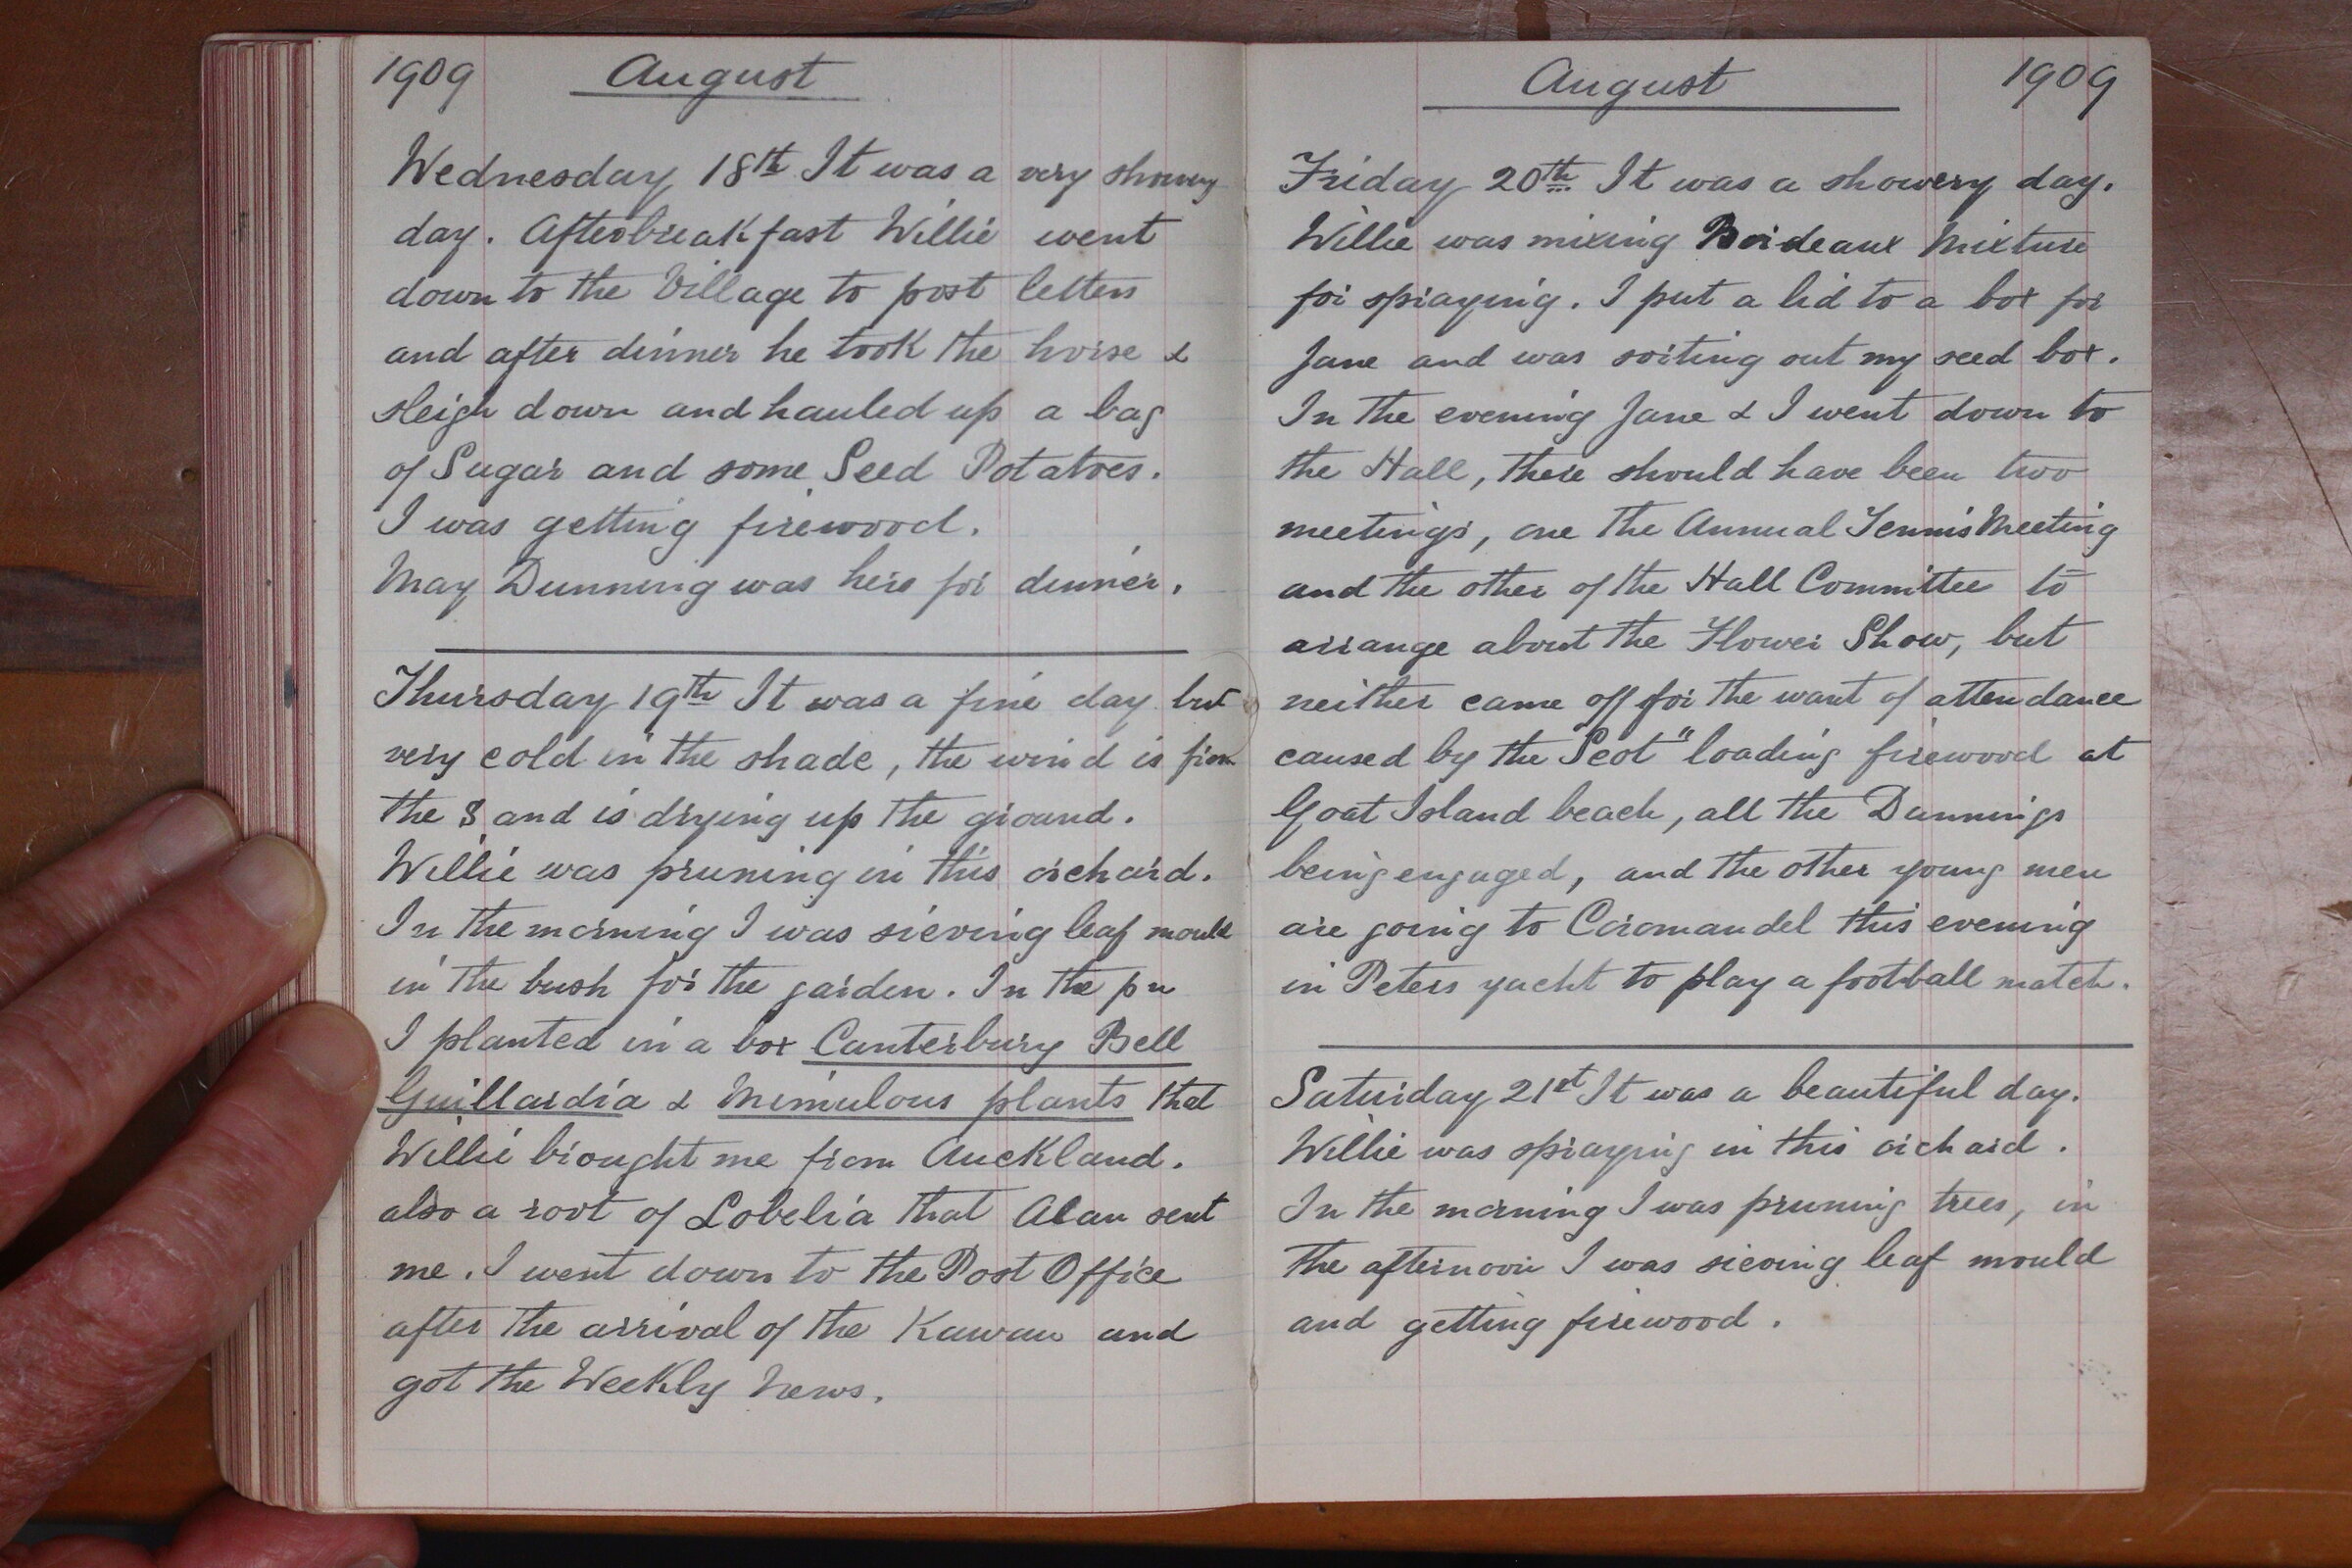 1909 August
Wednesday 18th It was a very showery
day. After breakfast Willie went
down to the Village to post letters
and after dinner he took the horse &
sleigh down and hauled up a bag
of Sugar and some Seed Potatoes.
I was getting firewood.
May Dunning was here for dinner.
Thursday 19th It was a fine day but
very cold in the shade, the wind is from
the S and is drying up the ground.
Willie was pruning in this orchard.
In the morning I was sieving leaf mould
in the bush for the garden. In the pm
I planted in a box Canterbury Bell
Guillardia & Mimulous plants that
Willie brought me from Auckland.
also a root of Lobelia that Alan sent
me. I went down to the Post Office
after the arrival of the Kawau and
got the Weekly News.
August 1909
Friday 20th It was a showery day.
Willie was mixing Bordeaux Mixture
for spraying. I put a lid to a box for
Jane and was sorting out my seed box.
In the evening Jane & I went down to
the Hall, there should have been two
meetings, one the Annual Tennis Meeting
and the other of the Hall Committee to
arrange about the Flower Show, but
neither came off for the want of attendance
caused by the Scot" loading firewood at
Goat Island beach, all the Dunnings
being engaged, and the other young men
are going to Coromandel this evening
in Peters yacht to play a football match.
Saturday 21st It was a beautiful day.
Willie was spraying in this orchard.
In the morning I was pruning trees, in
the afternoon I was sieving leaf mould
and getting firewood.